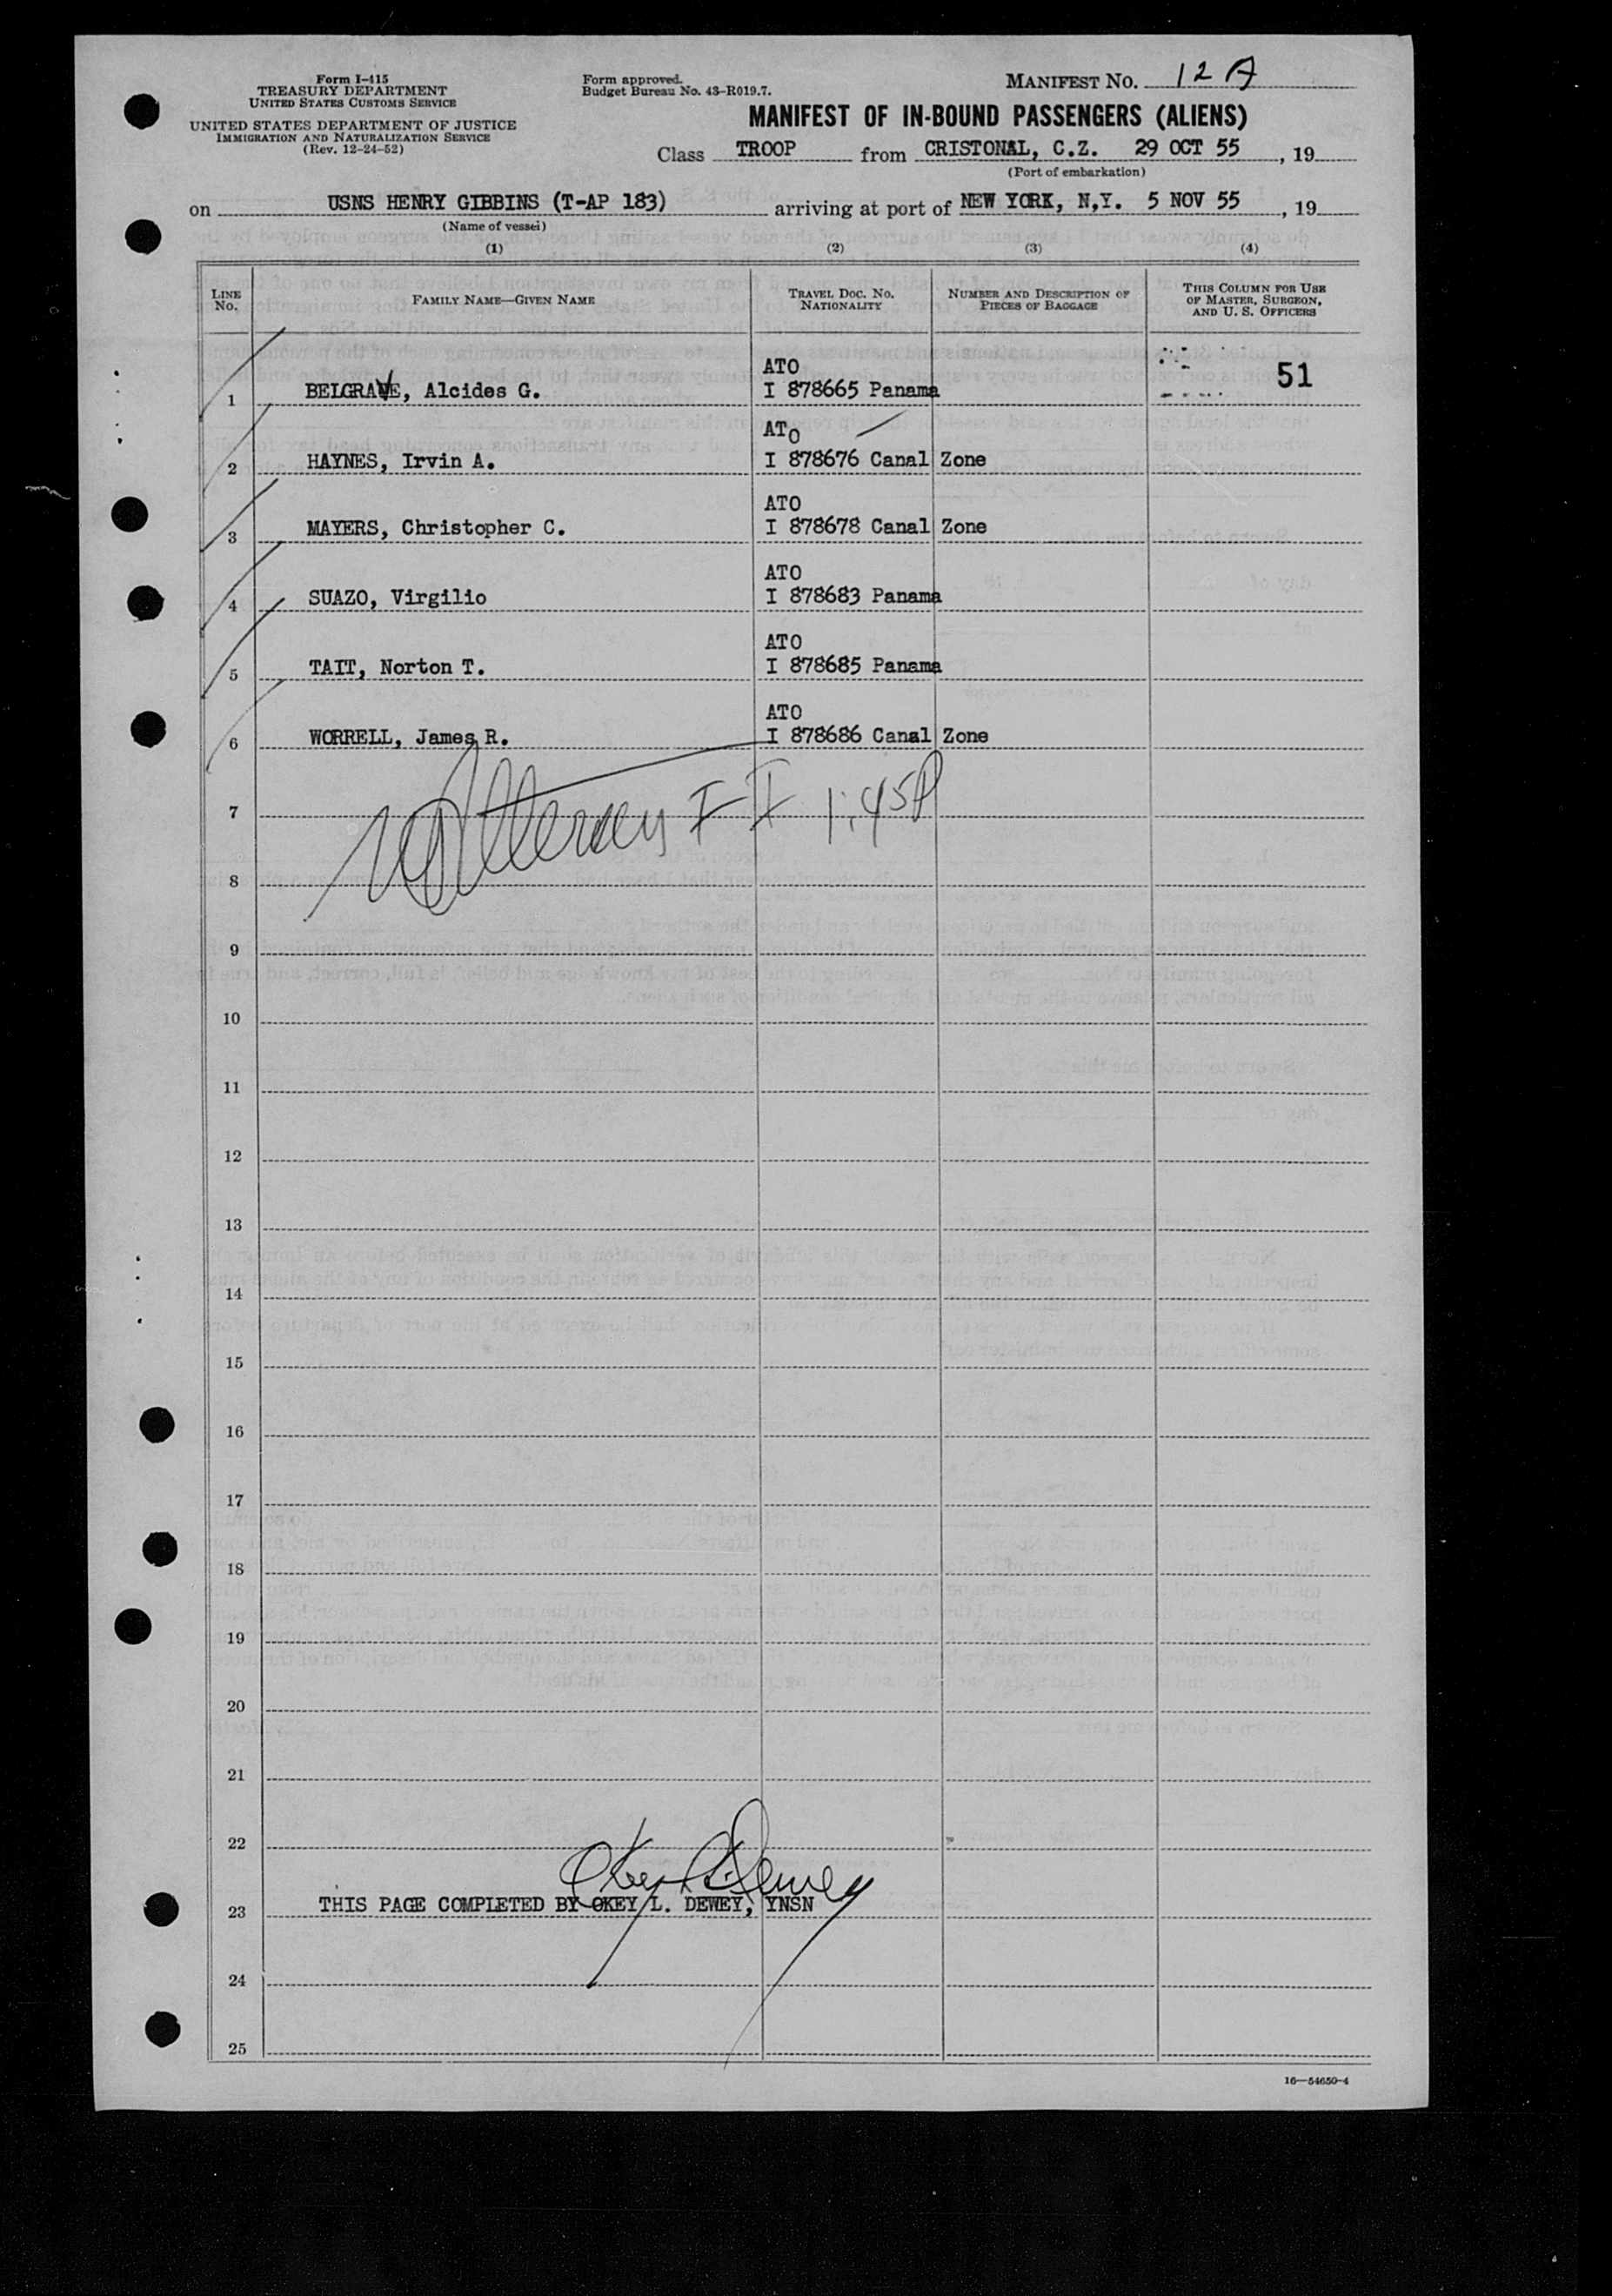 Form I-415
TREASURY DEPARTMENT
UNITED STATES CUSTOMS SERVICE
UNITED STATES DEPARTMENT OF JUSTICE
IMMIGRATION AND NATURALIZATION SERVICE
(Rev. 12-24-52)
Form approved.
Budget Bureau No. 43-R019.7.
MANIFEST NO. 12 A
MANIFEST OF IN-BOUND PASSENGERS (ALIENS)
Class TROOP from CRISTONAL, C.Z. 29 OCT 55, 19
(Port of embarkation)
on USNS HENRY GIBBINS (T-AP 183) arriving at port of NEW YORK, N,Y. 5 NOV 55, 19
(Name of vessel)
(1) (2) (3) (4)
LINE No. FAMILY NAME—GIVEN NAME TRAVEL DOC. NO. NATIONALITY NUMBER AND DESCRIPTION OF PIECES OF BAGGAGE THIS COLUMN FOR USE OF MASTER, SURGEON, AND U. S. OFFICERS
ATO
1 BELGRAVE, Alcides G. I 878665 Panama 51
ATO
2 HAYNES, Irvin A. I 878676 Canal Zone
ATO
3 MAYERS, Christopher C. I 878678 Canal Zone
ATO
4 SUAZO, Virgilio I 878683 Panama
ATO
5 TAIT, Norton T. I 878685 Panama
ATO
6 WORRELL, James R. I 878686 Canal Zone
7 1:45P
8
9
10
11
12
13
14
15
16
17
18
19
20
21
22
Okey L. Dewey
23 THIS PAGE COMPLETED BY OKEY L. DEWEY, YNSN
24
25
16—54650-4